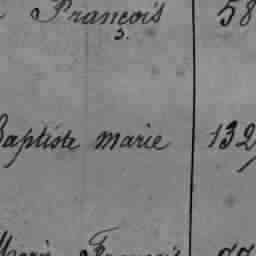 François 58
3.
Baptiste marie 132
Marie François